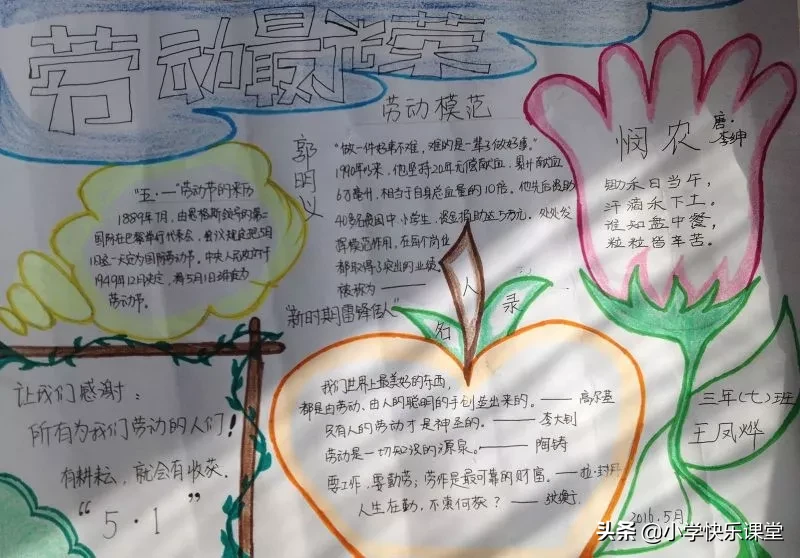 劳动最光荣
劳动模范
郭明义
"做一件好事不难,难的是一辈子做好事。"
1990年以来,他坚持20年无偿献血,累计献血
6万毫升,相当于自身总血量的10倍。他先后资助
40多名贫困中小学生,资金捐助达5万元。处处发
挥模范作用,在每个岗位
都取得了突出的业绩。
被称为——
"新时期雷锋传人"
"五·一"劳动节的来历
1889年7月,由恩格斯领导的第二
国际在巴黎举行代表会,会议规定把5月
1日这一天定为国际劳动节。中央人民政府于
1949年12月决定,将5月1日确定为
劳动节。
悯农
唐·李绅
锄禾日当午,
汗滴禾下土。
谁知盘中餐,
粒粒皆辛苦。
让我们感谢:
所有为我们劳动的人们!
有耕耘,就会有收获.
"5·1"
名人录
我们世界上最美好的东西,
都是由劳动、由人的聪明的手创造出来的。——高尔基
只有人的劳动才是神圣的。——李大钊
劳动是一切知识的源泉。——陶铸
要工作,要勤劳:劳作是最可靠的财富。——拉·封丹
人生在勤,不索何获?——张衡
三年(七)班
王凤烨
2016.5月
头条@小学快乐课堂